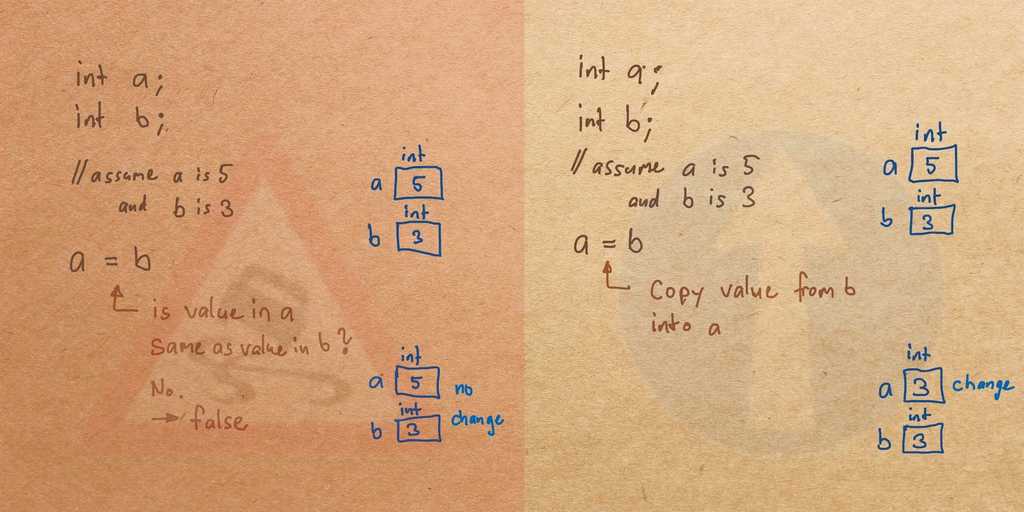 int a;
int b;
//assume a is 5
and b is 3
a = b
is value in a
Same as value in b?
No.
→ false
int
a 5
int
b 3
int
a 5 no
int change
b 3
int a;
int b;
//assume a is 5
and b is 3
a = b
Copy value from b
into a
int
a 5
int
b 3
int
a 3 change
int
b 3